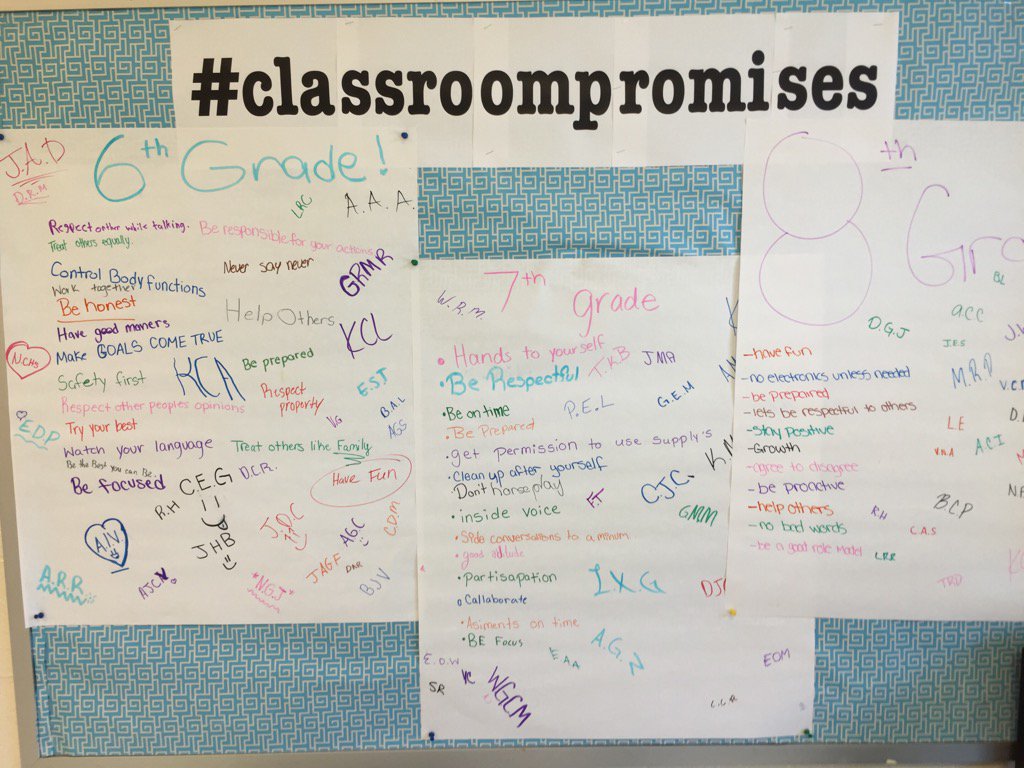 #classroompromises
J.A.D
D.R.M
6th Grade!
LRC
A.A.A.
Respect other while talking.
Treat others equally.
Be responsible for your actions
Control Body functions
Never say never
GRMR
Work together
Be honest
Help Others
Have good maners
KCL
NCHS
Make GOALS COME TRUE
KCA
Be prepared
Safety first
E.S.T
Respect property
Respect other peoples opinions
B.A.L
VG
AGS
E.D.P
Try your best
Watch your language
Treat others like Family
Be the Best you can Be
Be focused
C.E.G
D.C.R.
Have Fun
R.H
J.D.C
AGC
C.D.M
A.J.V
JHB
JAGF
DAR
A.R.R
AJCV.
*N.G.J*
BJV
7th grade
W.R.M.
• Hands to yourself
T.K.B
JMA
• Be Respectful
• Be on time
P.E.L
G.E.M
• Be Prepared
• get permission to use supply's
• Clean up after yourself
• Don't horseplay
F.T
C.J.C.
• inside voice
GMM
• Side conversations to a minimum
• good attitude
• partisapation
I.X.G
• Callaborate
• Asiments on time
• BE Focus
A.G.N
E.A.A
E.O.W
EOM
SR
VC
WGCM
C.C.R
8th Gra
D.G.J
a.c.c
J.E.S
-have fun
-no electronics unless needed
M.R.D
V.C.
-be prepaired
-lets be respectful to others
LE
-stay positive
A.C.I
-Growth
-agree to disagree
-be proactive
-help others
R.H
BCP
-no bad words
C.A.S
-be a great role model
L.R.R
TRD